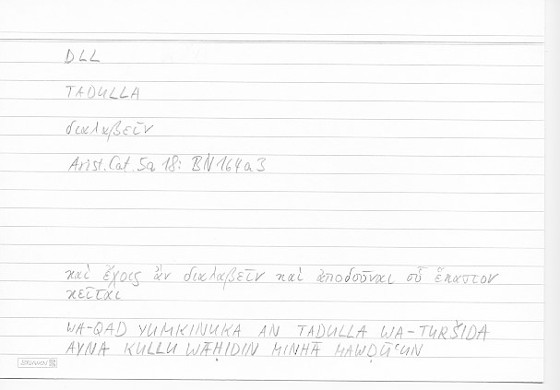 DLL
TADULLA
διαλαβεῖν
Arist. Cat. 5a 18: BN 164a3
καὶ ἔχοις ἂν διαλαβεῖν καὶ ἀποδοῦναι οὗ ἕκαστον
κεῖται
WA-QAD YUMKINUKA AN TADULLA WA-TURŠIDA
AYNA KULLU WĀḤIDIN MINHĀ MAWḌŪʿUN